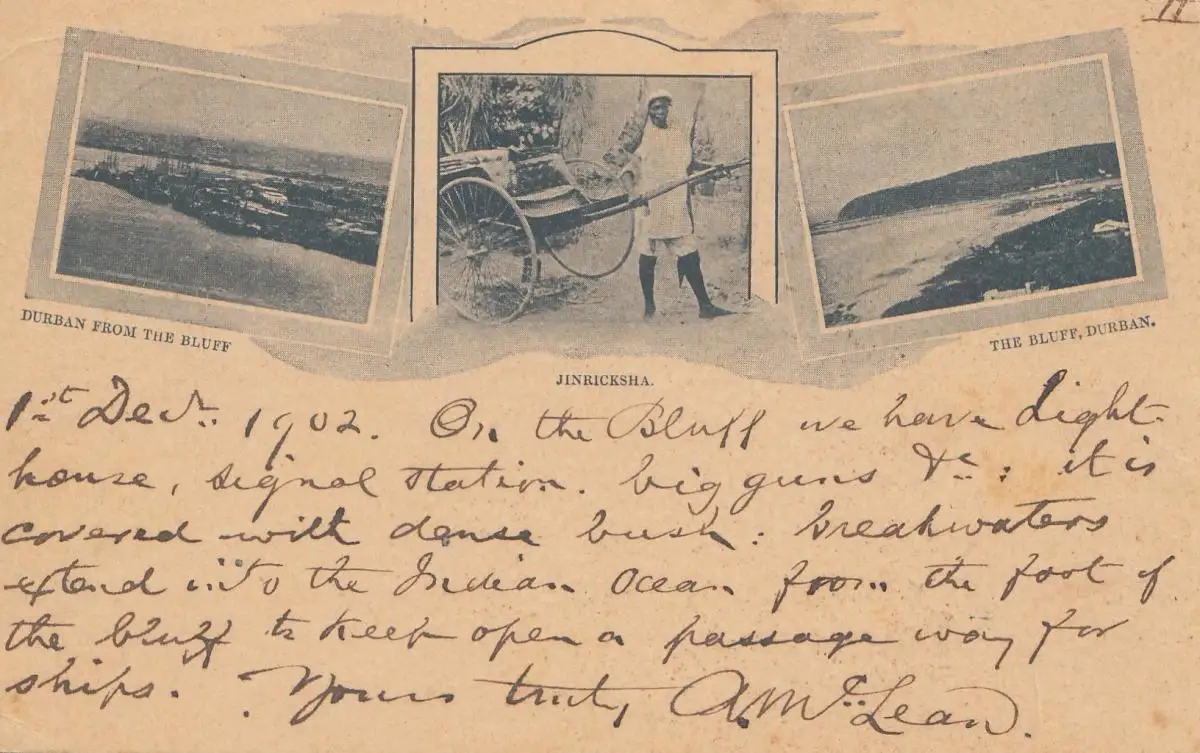 DURBAN FROM THE BLUFF
JINRICKSHA.
THE BLUFF, DURBAN.
1st Decr. 1902. On the Bluff we have Light-
house, signal station. big guns &c: it is
covered with dense bush: breakwaters
extend into the Indian Ocean from the foot of
the bluff to keep open a passage way for
ships. Yours truly, A. McLean.